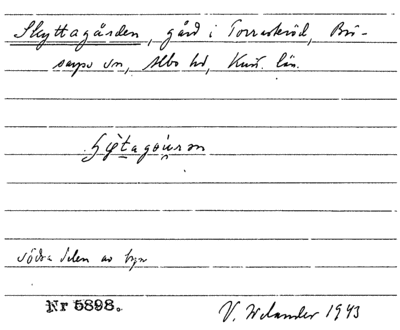 Skyttagården, gård i Torraskröd, Brö-
sarps sn, Albo hd, Krist. län.
södra delen av byn
Nr 5898.
V. Welander 1943